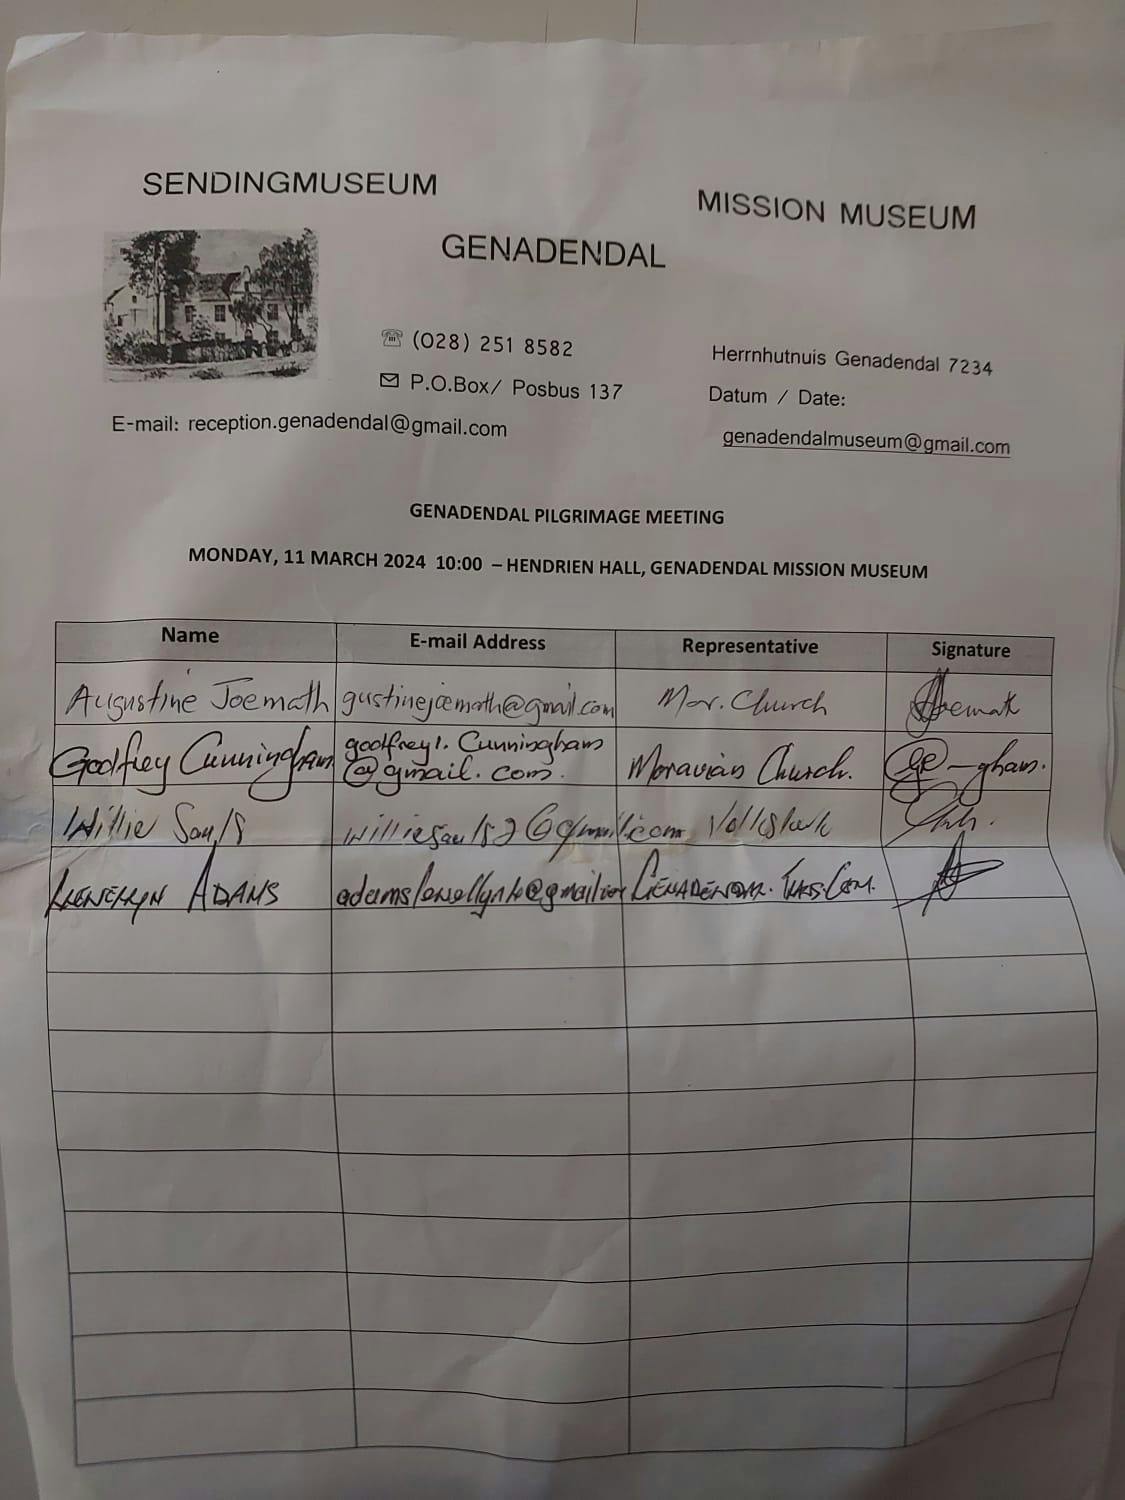 SENDINGMUSEUM
MISSION MUSEUM
GENADENDAL
(028) 251 8582
Herrnhutnuis Genadendal 7234
P.O.Box/ Posbus 137
Datum / Date:
E-mail: reception.genadendal@gmail.com
genadendalmuseum@gmail.com
GENADENDAL PILGRIMAGE MEETING
MONDAY, 11 MARCH 2024 10:00 – HENDRIEN HALL, GENADENDAL MISSION MUSEUM
Name E-mail Address Representative Signature
Augustine Joemath gustinejoemath@gmail.com Mor. Church
Godfrey Cunningham godfrey1.Cunningham
@gmail.com. Moravian Church.
Willie Sauls
ADAMS